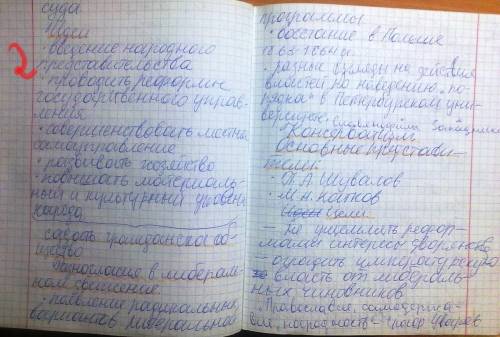 суда
Идеи
• введение народного
представительства
2
• проводить реформы
государственного управ-
ления
• совершенствовать местное
самоуправление
• развивать хозяйство
• повышать материаль-
ный и культурный уровень
народа
создать гражданское об-
щество
Разногласия в либераль-
ном движении
• появление радикальных
вариантов либеральной
программы
• восстание в Польше
1863-1864 гг.
• разные взгляды на действия
властей по наведению "по-
рядка" в Петербургском уни-
верситете
Консерватизм
Основные представи-
тели:
• П.А. Шувалов
• М.Н. Катков
Цели:
– Не ущемлять рефор-
мами интересы дворянства
– оградить императорскую
власть от либераль-
ных чиновников
Православие, самодержа-
вие, народность – граф Уваров